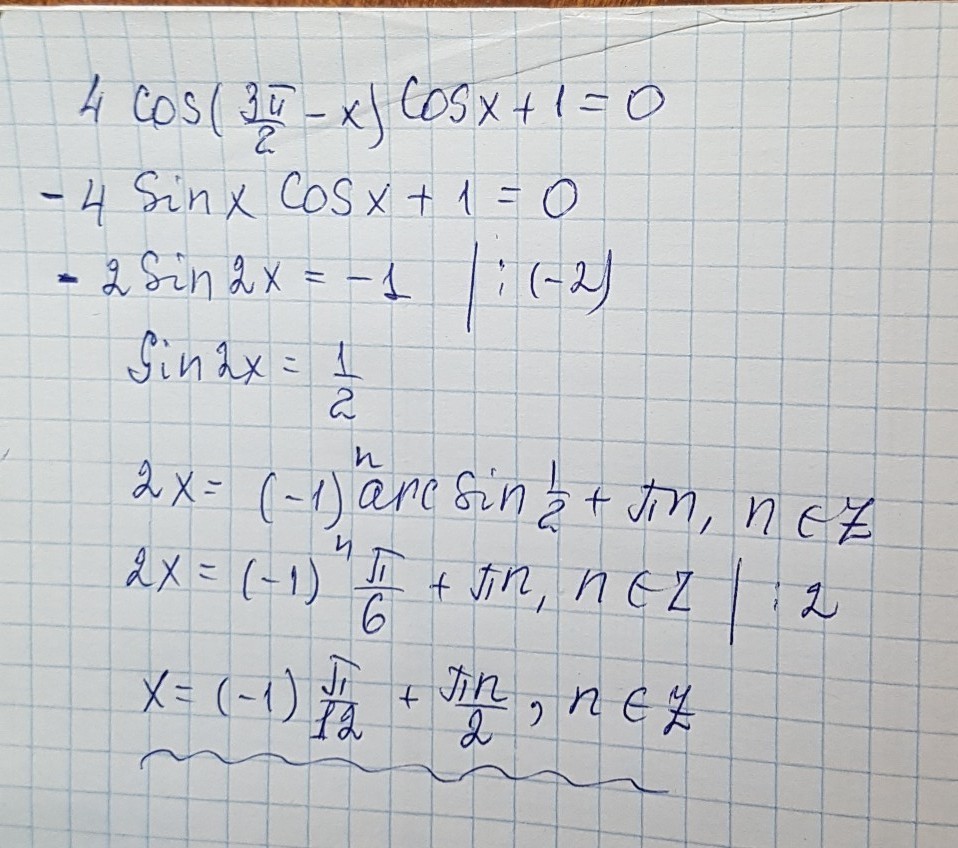 4 cos(3π/2 - x) cosx + 1 = 0
- 4 sinx cosx + 1 = 0
- 2 sin2x = -1 | : (-2)
sin2x = 1/2
2x = (-1)ⁿ arcsin 1/2 + πn, n ∈ Z
2x = (-1)ⁿ π/6 + πn, n ∈ Z | : 2
x = (-1) π/12 + πn/2, n ∈ Z